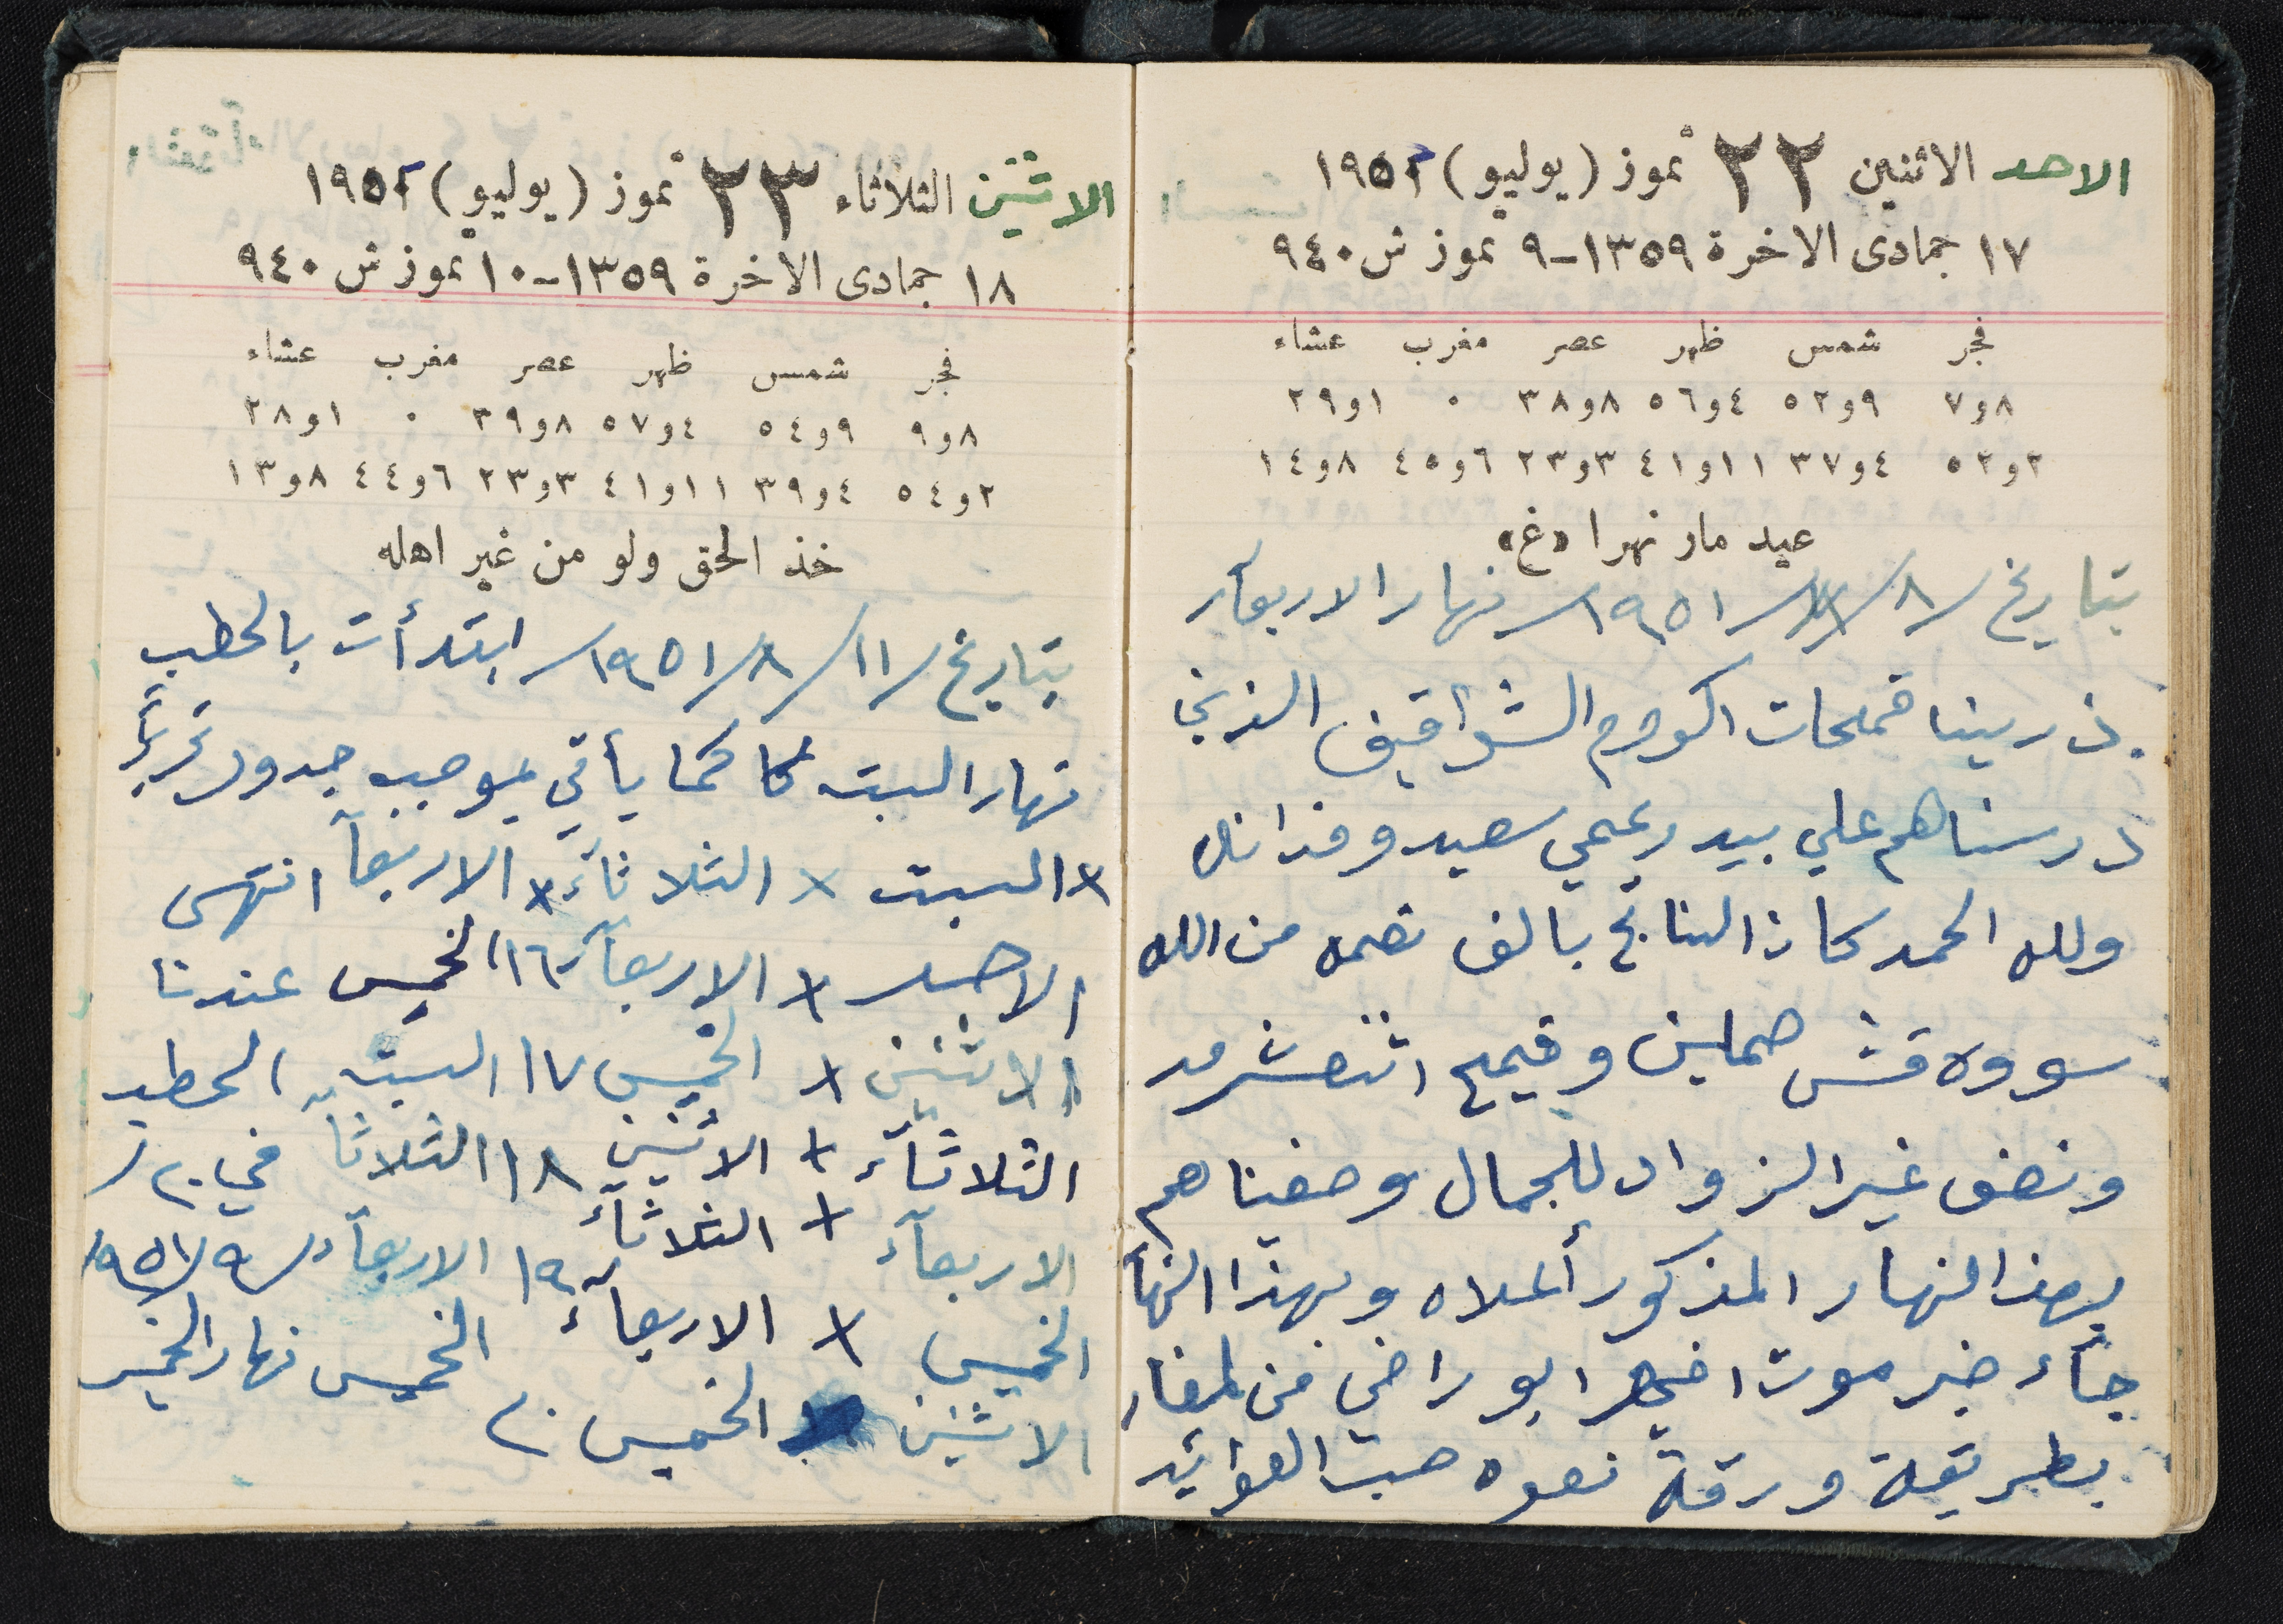 الاحد الاثنين ٢٢ تموز (يوليو) ١٩٥١
١٧ جمادى الاخرة ١٣٥٩-٩ تموز ش ٩٤٠
فجر شمس ظهر عصر مغرب عشاء
٨و٧ ٩و٥٢ ٤و٥٦ ٨و٣٨ ٠ ١و٢٩
٢و٥٢ ٤و٣٧ ١١و٤١ ٣و٢٣ ٦و٤٥ ٨و١٤
عيد مار نهرا «غ»
بتاريخ /٨/٨/١٩٥١/ نهار الاربعآء
ذرينا قمحات اكروم الشواقيف الذي
درسناهم علي بيدر عمي سعيد
ولله الحمد كان الناتج بالف نعمه من الله
سووه قش حملين وقيمح اثنعشر مد
ونصف غير الزواد للجمال وضفيناهم
بهذا النهار المذكور أعلاه وبهذا النها
جآء خبر موت ابو راضي من
بطريقة ورقة نعوه حسب العوائد
الاثنين الثلاثاء ٢٣ تموز (يوليو) ١٩٥١
١٨ جمادى الاخرة ١٣٥٩-١٠ تموز ش ٩٤٠
فجر شمس ظهر عصر مغرب عشاء
٨و٩ ٩و٥٤ ٤و٥٧ ٨و٣٩ ٠ ١و٢٨
٢و٥٤ ٤و٣٩ ١١و٤١ ٣و٢٣ ٦و٤٤ ٨و١٣
خذ الحق ولو من غير اهله
بتاريخ /١١/٨/١٩٥١/ ابتدأت بالحطب
نهار السبت كما يأتي بموجب جدول
x السبت x الثلاثآء x الاربعآ انتهى
الاحد x الاربعآء ١٦ الخميس عندنا
الاثنين x الخميس ١٧ السبت الحطب
الثلاثآء x الاثنين ١٨ الثلاثآ في ٢٠/
الاربعآء x الثلاثآء ١٩ الاربعآء /٩/١٩٥١
الخميس x الاربعآء الخميس نهار الخميس
الاثنين الخميس ٢٠